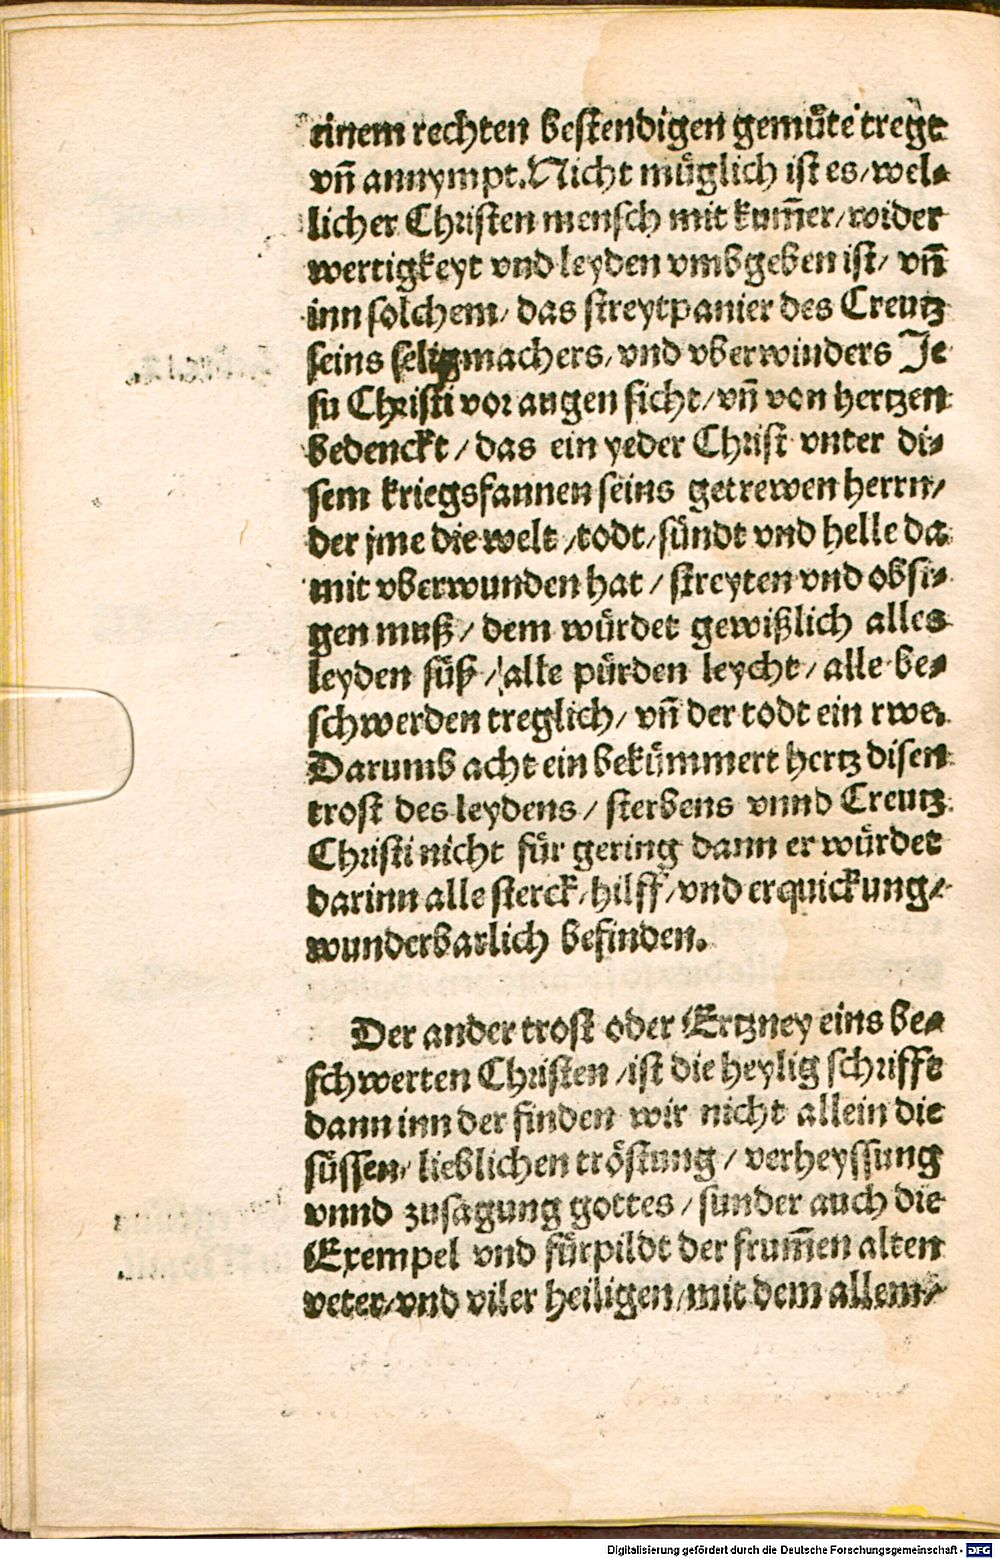 einem rechten bestendigen gemüte tregt
vñ annympt. Nicht müglich ist es/ wel⸗
licher Christen mensch mit kum̃er/ wider
wertigkeyt vnd leyden vmbgeben ist/ vñ
inn solchem/ das streytpanier des Creutz
seins seligmachers/ vnd vberwinders Je
su Christi vor augen sicht/ vñ von hertzen
bedenckt/ das ein yeder Christ vnter di⸗
sem kriegsfannen seins getrewen herrn/
der jme die welt/ todt/ sündt vnd helle da
mit vberwunden hat/ streyten vnd obsi⸗
gen muß/ dem würdet gewißlich alles
leyden süß/ alle pürden leycht/ alle be⸗
schwerden treglich/ vñ der todt ein rwe.
Darumb acht ein bekümmert hertz disen
trost des leydens/ sterbens vnnd Creutz
Christi nicht für gering dann er würdet
darinn alle sterck/ hilff/ vnd erquickung/
wunderbarlich befinden.
Der ander trost oder Ertzney eins be⸗
schwerten Christen/ ist die heylig schrifft
dann inn der finden wir nicht allein die
süssen/ lieblichen tröstung/ verheyssung
vnnd zusagung gottes/ sunder auch die
Exempel vnd fürpildt der frum̃en alten
veter/ vnd viler heiligen/ mit dem allem/
Digitalisierung gefördert durch die Deutsche Forschungsgemeinschaft - DFG